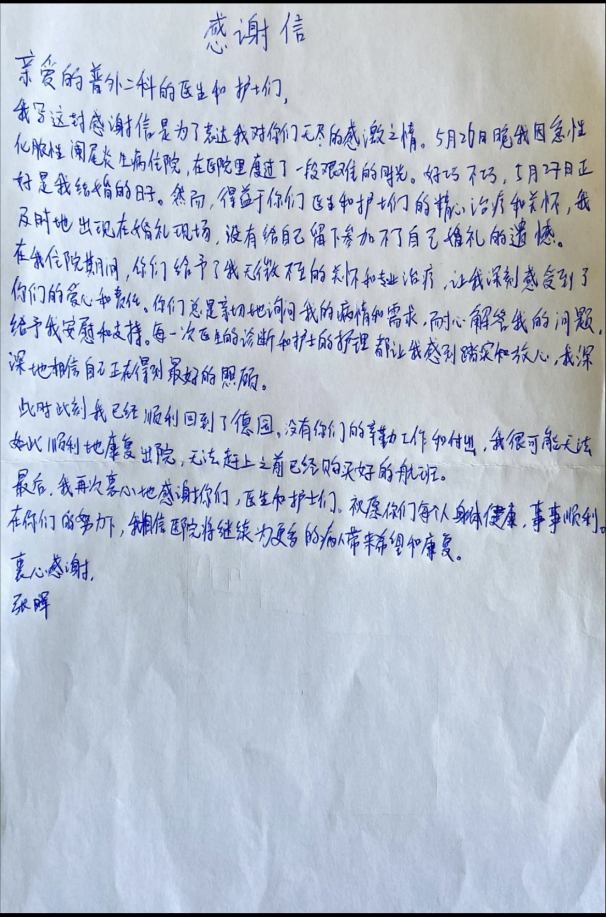 感谢信
亲爱的普外二科的医生和护士们,
我写这封感谢信是为了表达我对你们无尽的感激之情。5月26日晚我因急性
化脓性阑尾炎生病住院,在医院里度过了一段艰难的时光。好巧不巧,5月27日正
好是我结婚的日子。然而,得益于你们医生和护士们的精心治疗和关怀,我
及时地出现在婚礼现场,没有给自己留下参加不了自己婚礼的遗憾。
在我住院期间,你们给予了我无微不至的关怀和专业治疗,让我深刻感受到了
你们的爱心和责任。你们总是亲切地询问我的病情和需求,耐心解答我的问题,
给予我安慰和支持。每一次医生的诊断和护士的护理都让我感到踏实和放心,我深
深地相信自己正在得到最好的照顾。
此时此刻我已经顺利回到了德国。没有你们的辛勤工作和付出,我很可能无法
如此顺利地康复出院,无法赶上之前已经购买好的航班。
最后,我再次衷心地感谢你们,医生和护士们。祝愿你们每个人身体健康,事事顺利。
在你们的努力下,我相信医院将继续为更多的病人带来希望和康复。
衷心感谢,
张晖